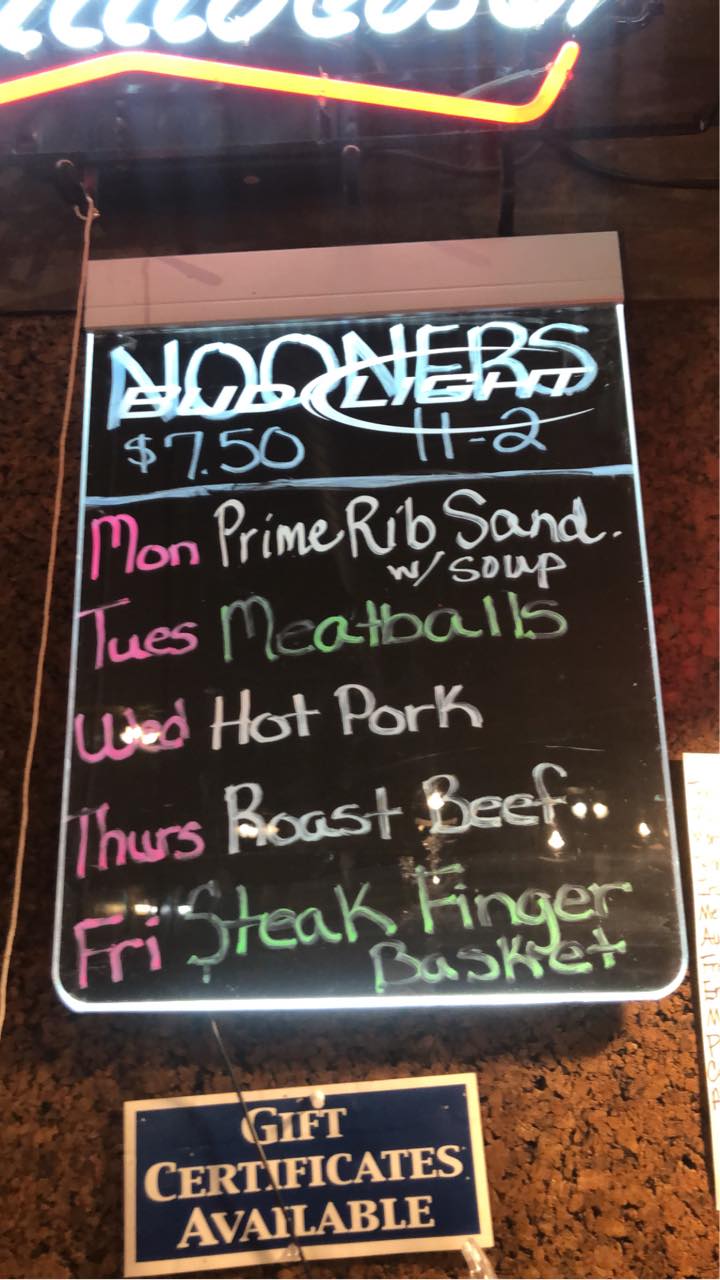 NOONERS
BUD LIGHT
$7.50 11-2
Mon Prime Rib Sand.
w/ soup
Tues Meatballs
Wed Hot Pork
Thurs Roast Beef
Fri Steak Finger
Basket
GIFT
CERTIFICATES
AVAILABLE